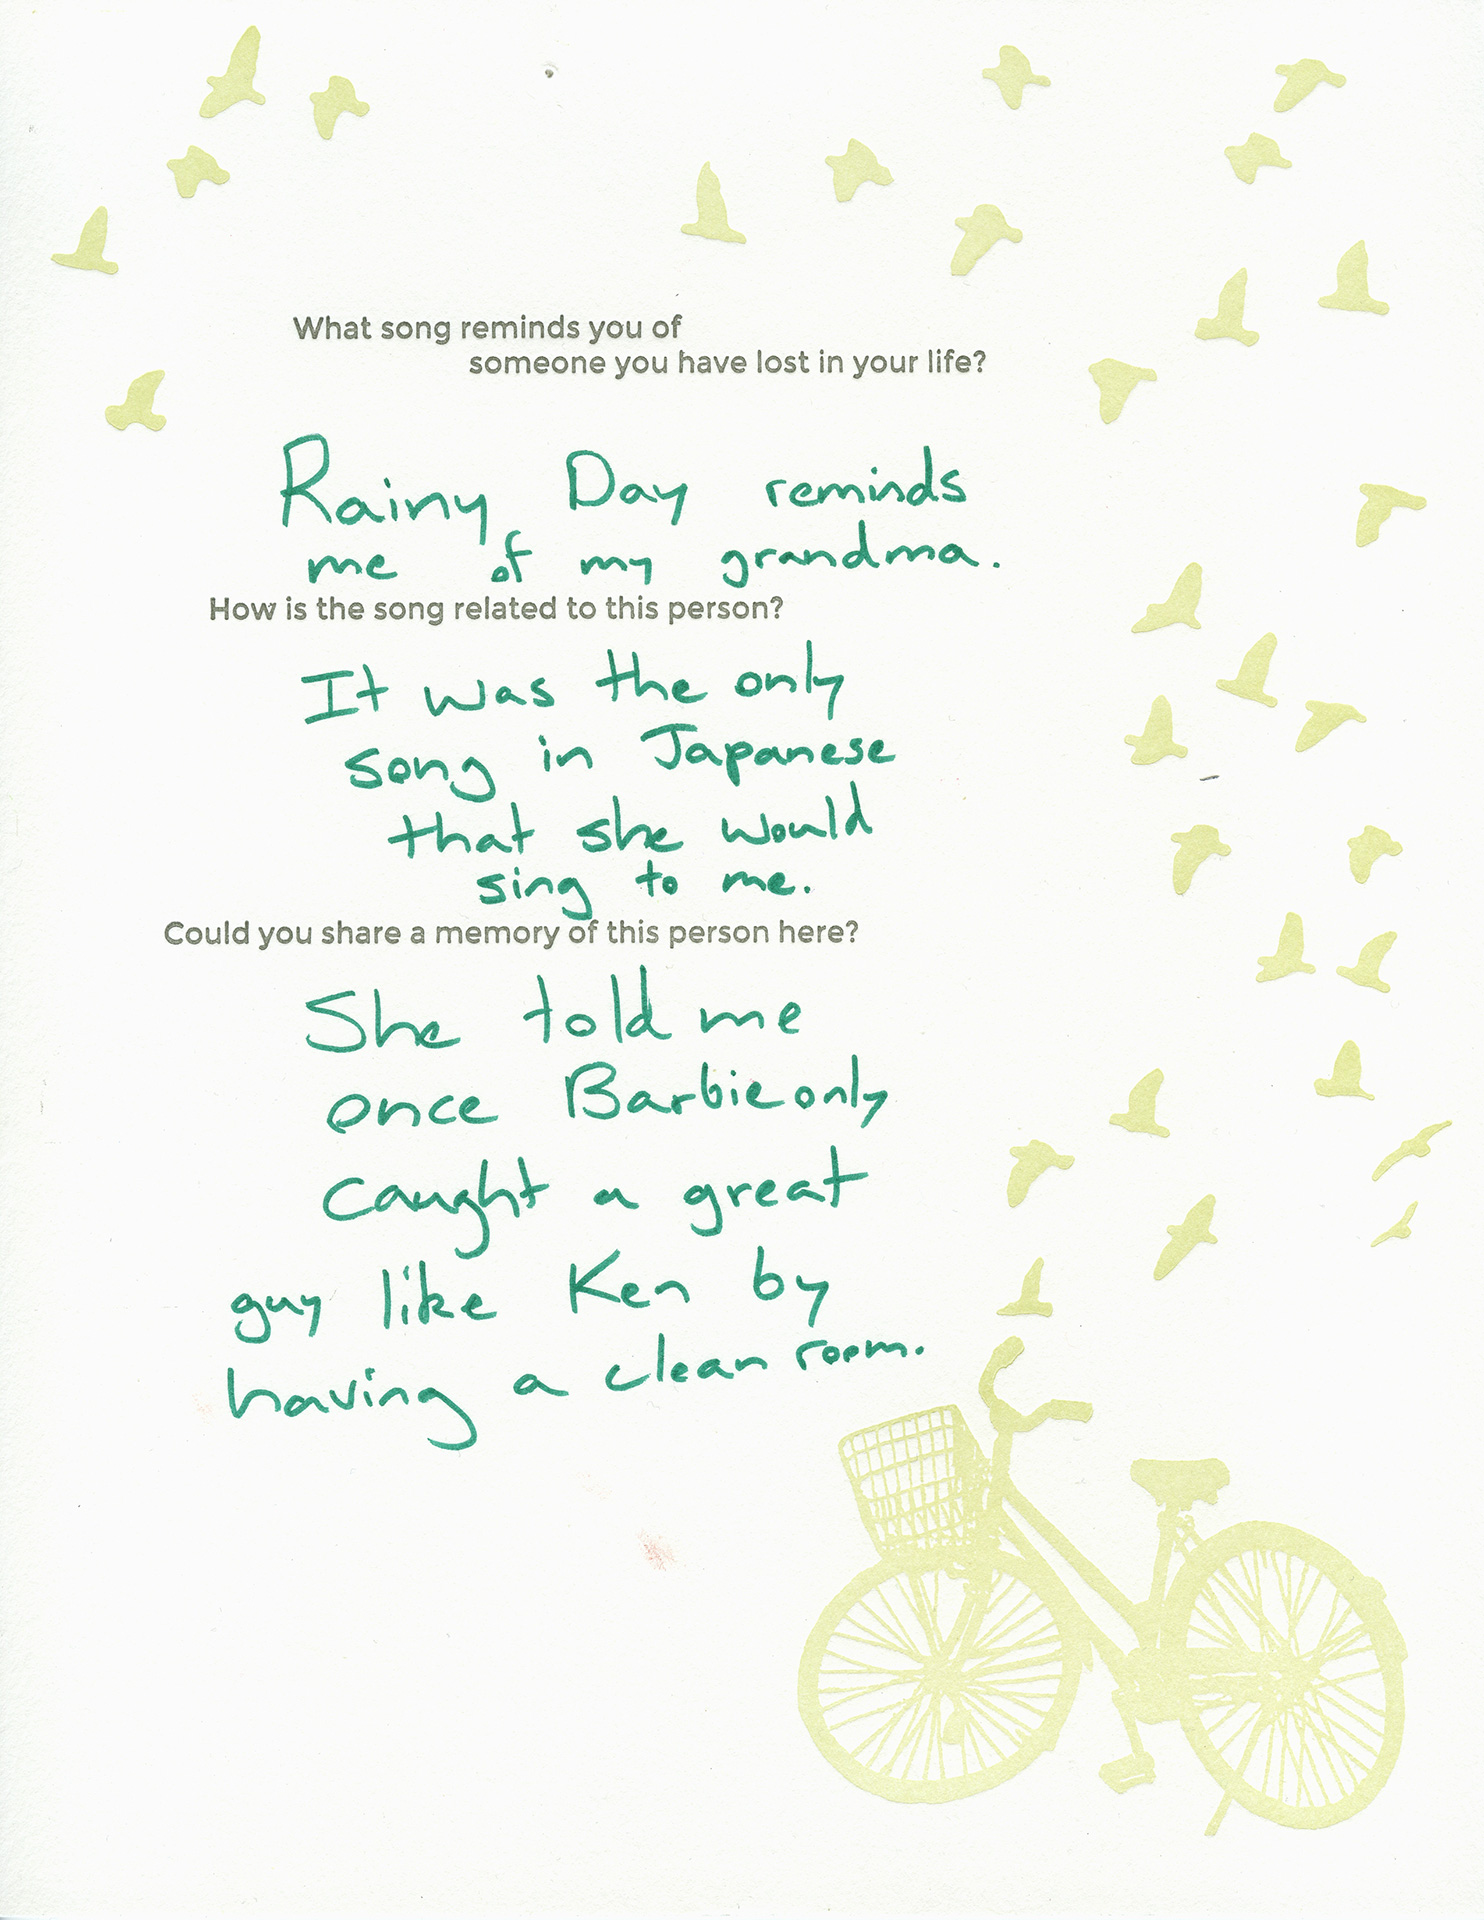 What song reminds you of
someone you have lost in your life?
Rainy Day reminds
me of my grandma.
How is the song related to this person?
It was the only
song in Japanese
that she would
sing to me.
Could you share a memory of this person here?
She told me
once Barbie only
caught a great
guy like Ken by
having a clean room.